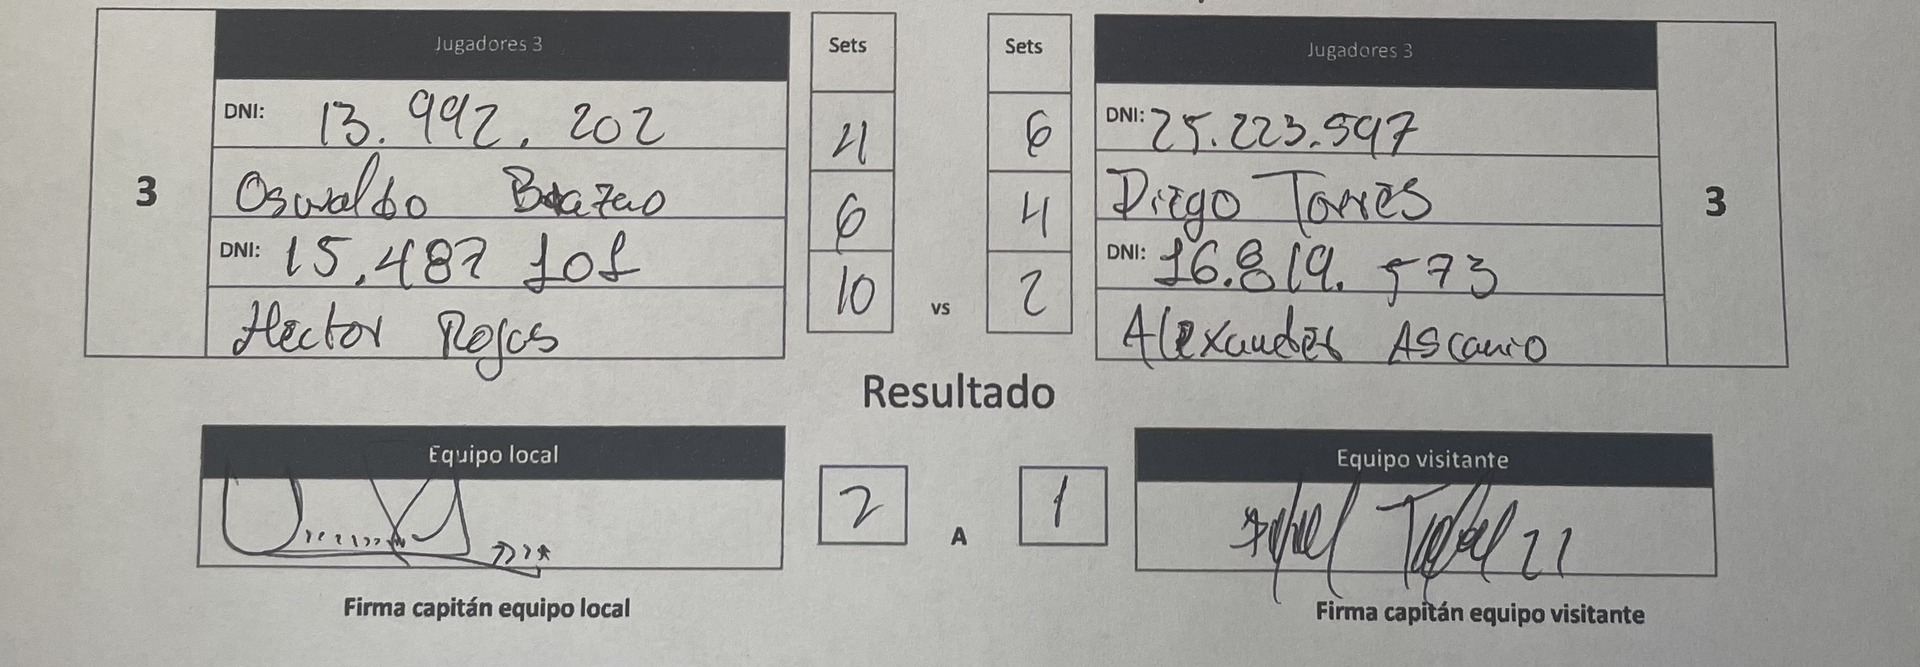 Jugadores 3
Sets
Sets
Jugadores 3
3
DNI: 13.992.202
Oswaldo
DNI: 15.487 101
Hector Rojas
4
6
10
vs
6
4
2
DNI: 25.223.597
Diego Torres
DNI: 16.819.573
Alexander Ascanio
3
Resultado
Equipo local
2
A
1
Equipo visitante
Firma capitán equipo local
Firma capitán equipo visitante